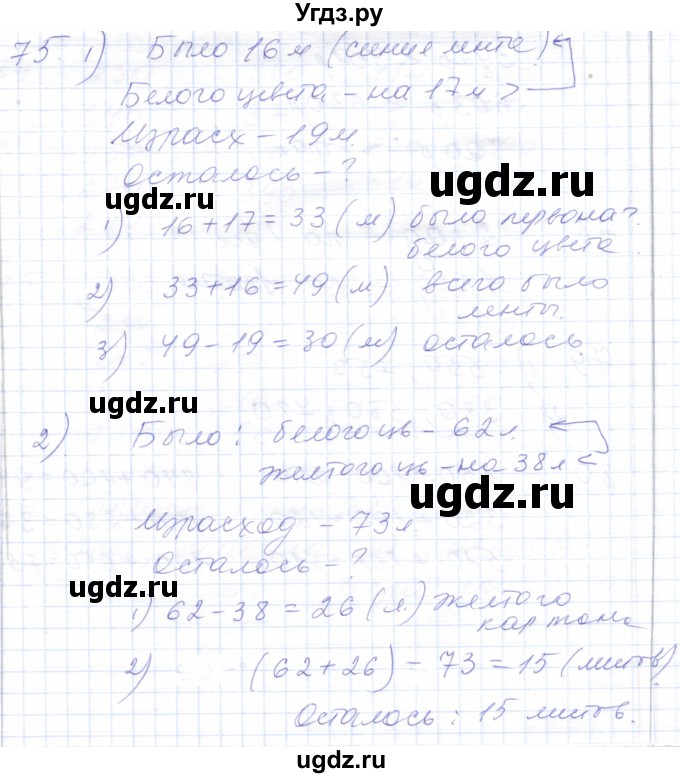 Угдз.ру
75. 1) Было 16 м (синяя лента)
Белого цвета – на 17 м >
Израсх – 19 м.
Осталось – ?
ugdz.ru
ugdz.ru
1) 16 + 17 = 33 (м) было первонач.
белого цвета.
2) 33 + 16 = 49 (м) всего было
ленты.
3) 49 – 19 = 30 (м) осталось.
ugdz.ru
ugdz.ru
2) Было: белого цв – 62 л.
желтого цв – на 38 л <
ugdz.ru
Израсход – 73 л.
Осталось – ?
ugdz.ru
1) 62 – 38 = 26 (л.) желтого
картона
2) (62 + 26) – 73 = 15 (листов)
Осталось: 15 листов.
ugdz.ru